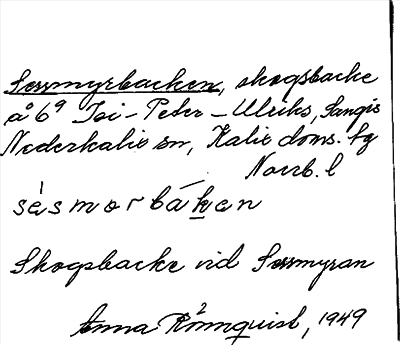 Sessmyrbacken, skogsbacke
å 6⁹ Isi-Peter-Ulriks, Sangis
Nederkalix sn, Kalix doms. tg
Norrb. l
sèsmorbáken
Skogsbacke vid Sessmyran
Anna Rönnquist, 1949